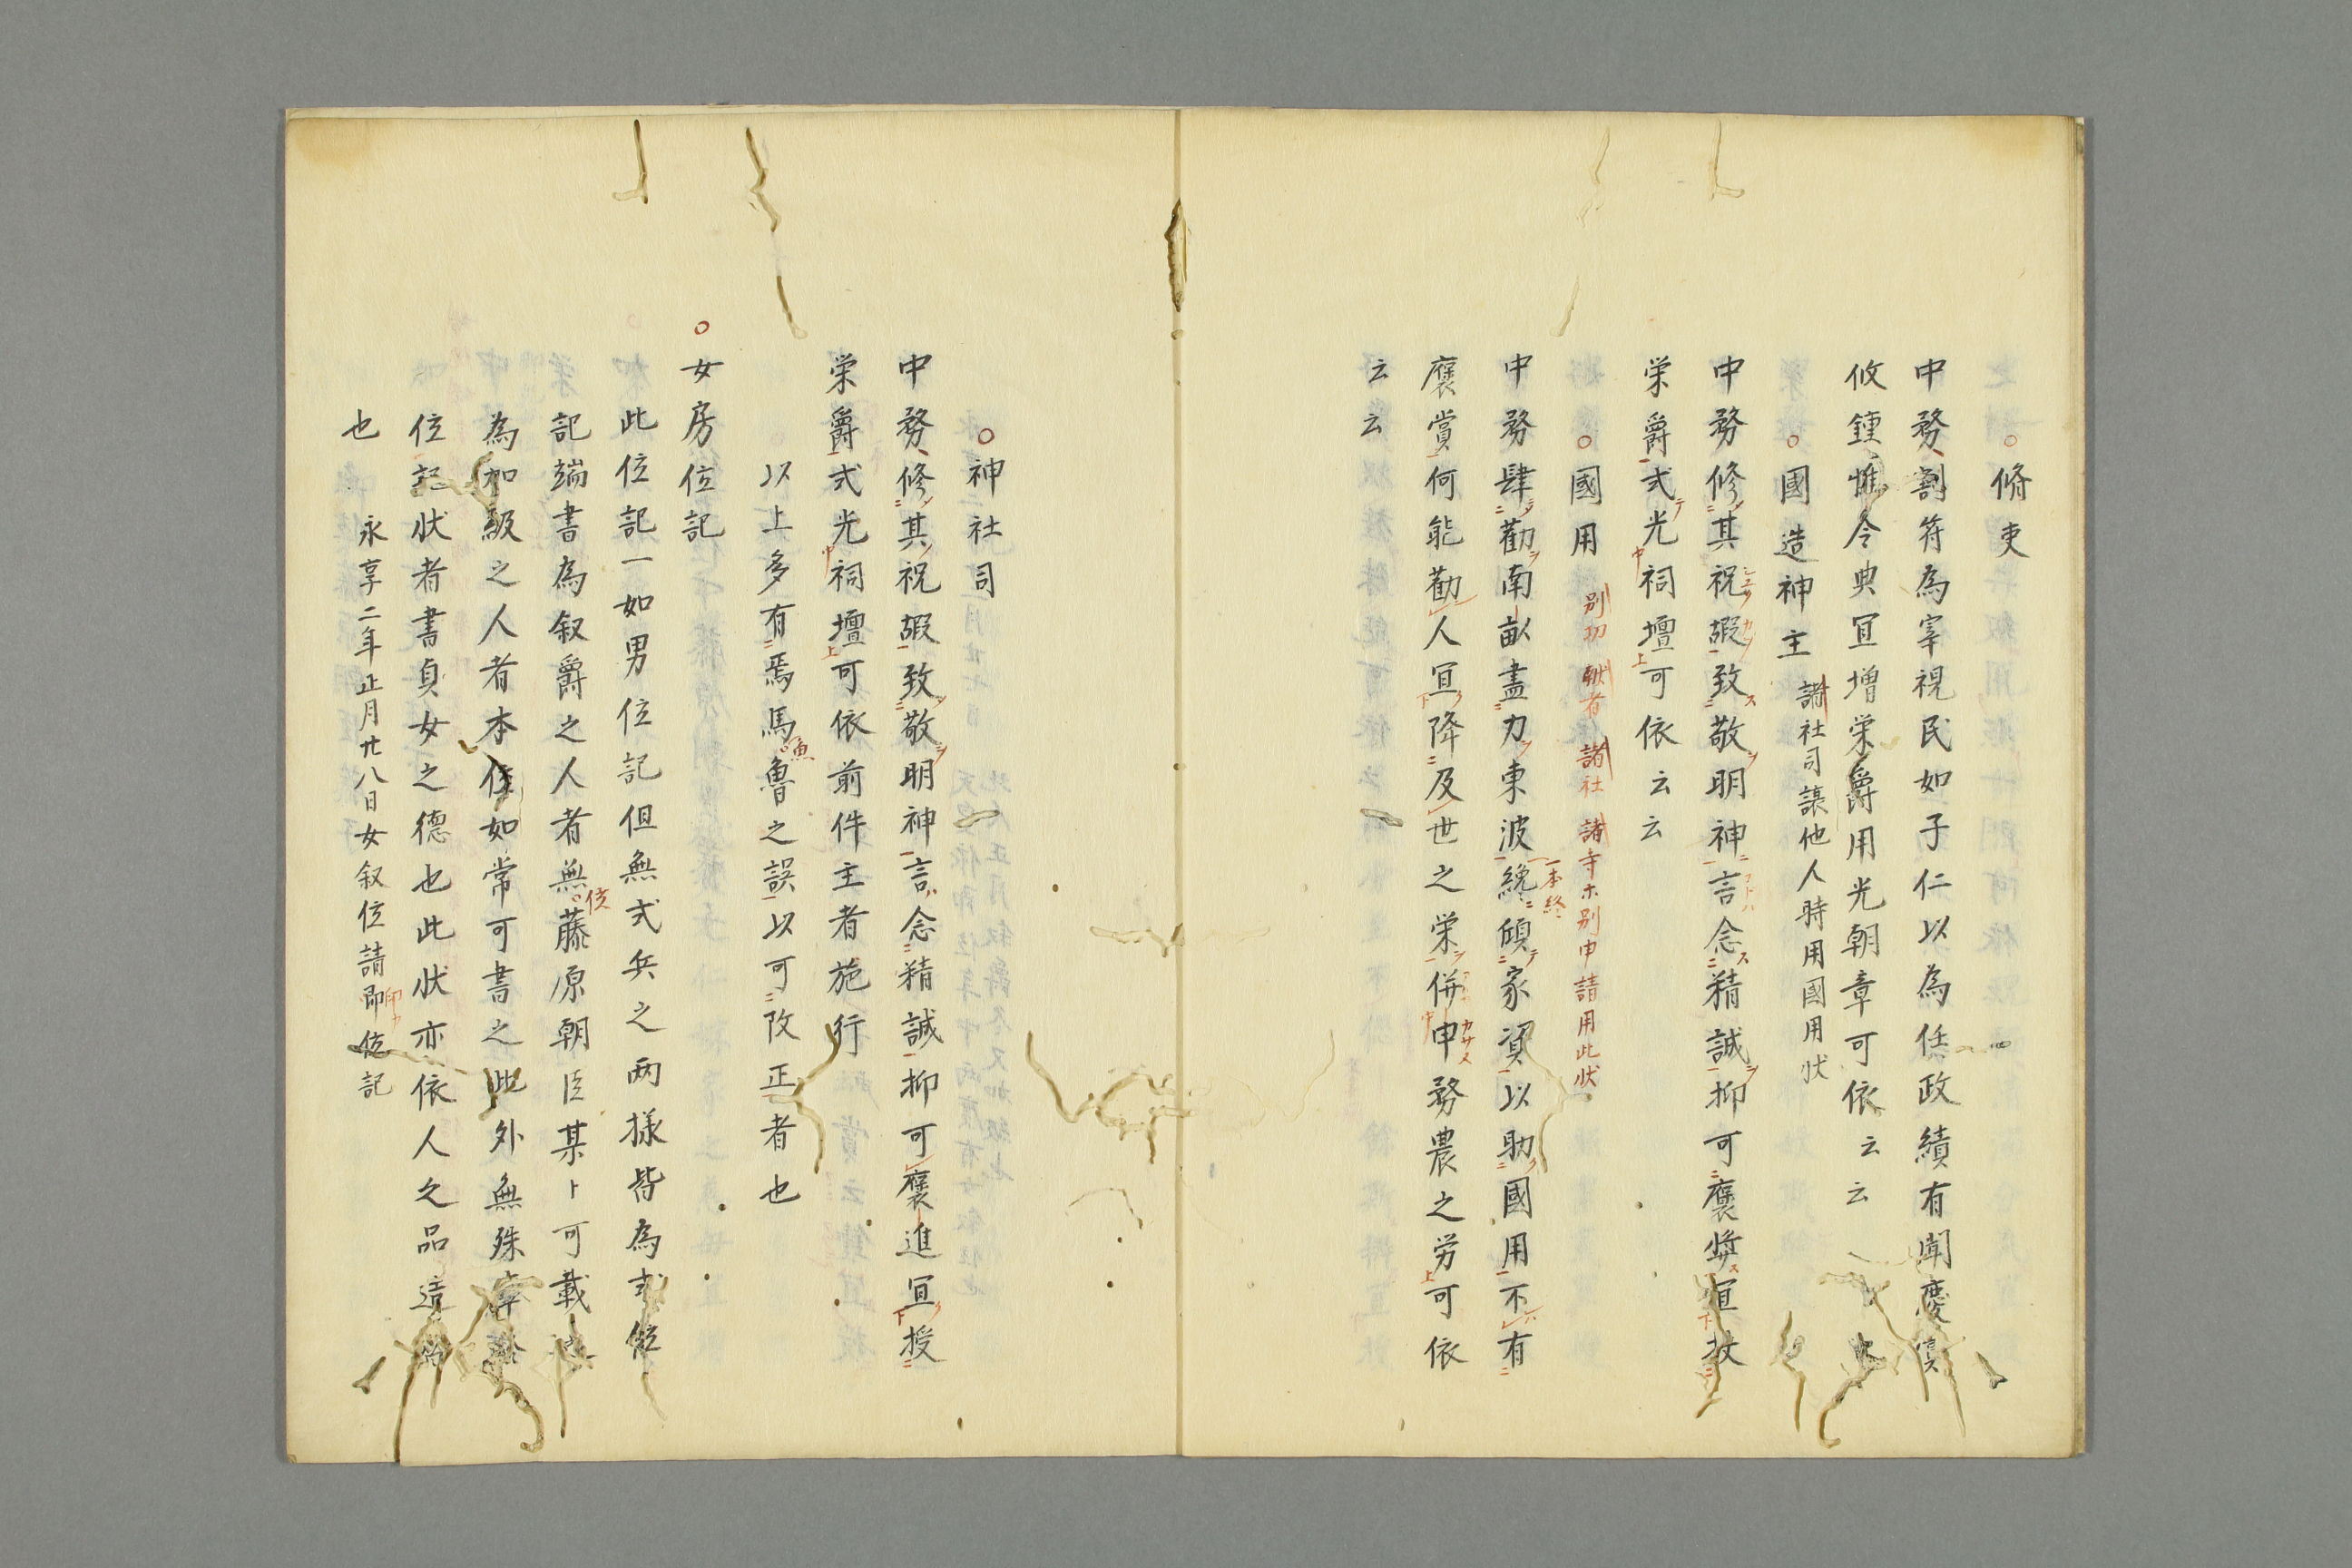 ○脩吏
中務割符為宰視民如子仁以為任政績有聞慶賞
攸鍾惟令典宜增栄爵用光朝章可依云云
○國造神主 諸社司譲他人時用國用状
中務修其祝嘏致敬明神言念精誠抑可褒奨宜
栄爵式光祠壇可依云云
○國用 別功 献者 諸社 諸寺ホ別申請用此状
中務肆勸南畝盡力東波纔傾家資以助國用不有
一本終
褒賞何能勸人宜降及世之栄併申務農之労可依
云云
○神社司
中務修其祝嘏致敬明神言念精誠抑可褒進宜授
栄爵式光祠壇可依前件主者施行
以上多有焉馬魯之誤以可改正者也
魚
○女房位記
此位記一如男位記但無式兵之両様皆為式位
記端書為叙爵之人者無藤原朝臣某卜可載
位
為加級之人者本位如常可書之此外無殊
位記状者書貞女之德也此状亦依人之品
也 永享二年正月廿八日女叙位請即位記
印